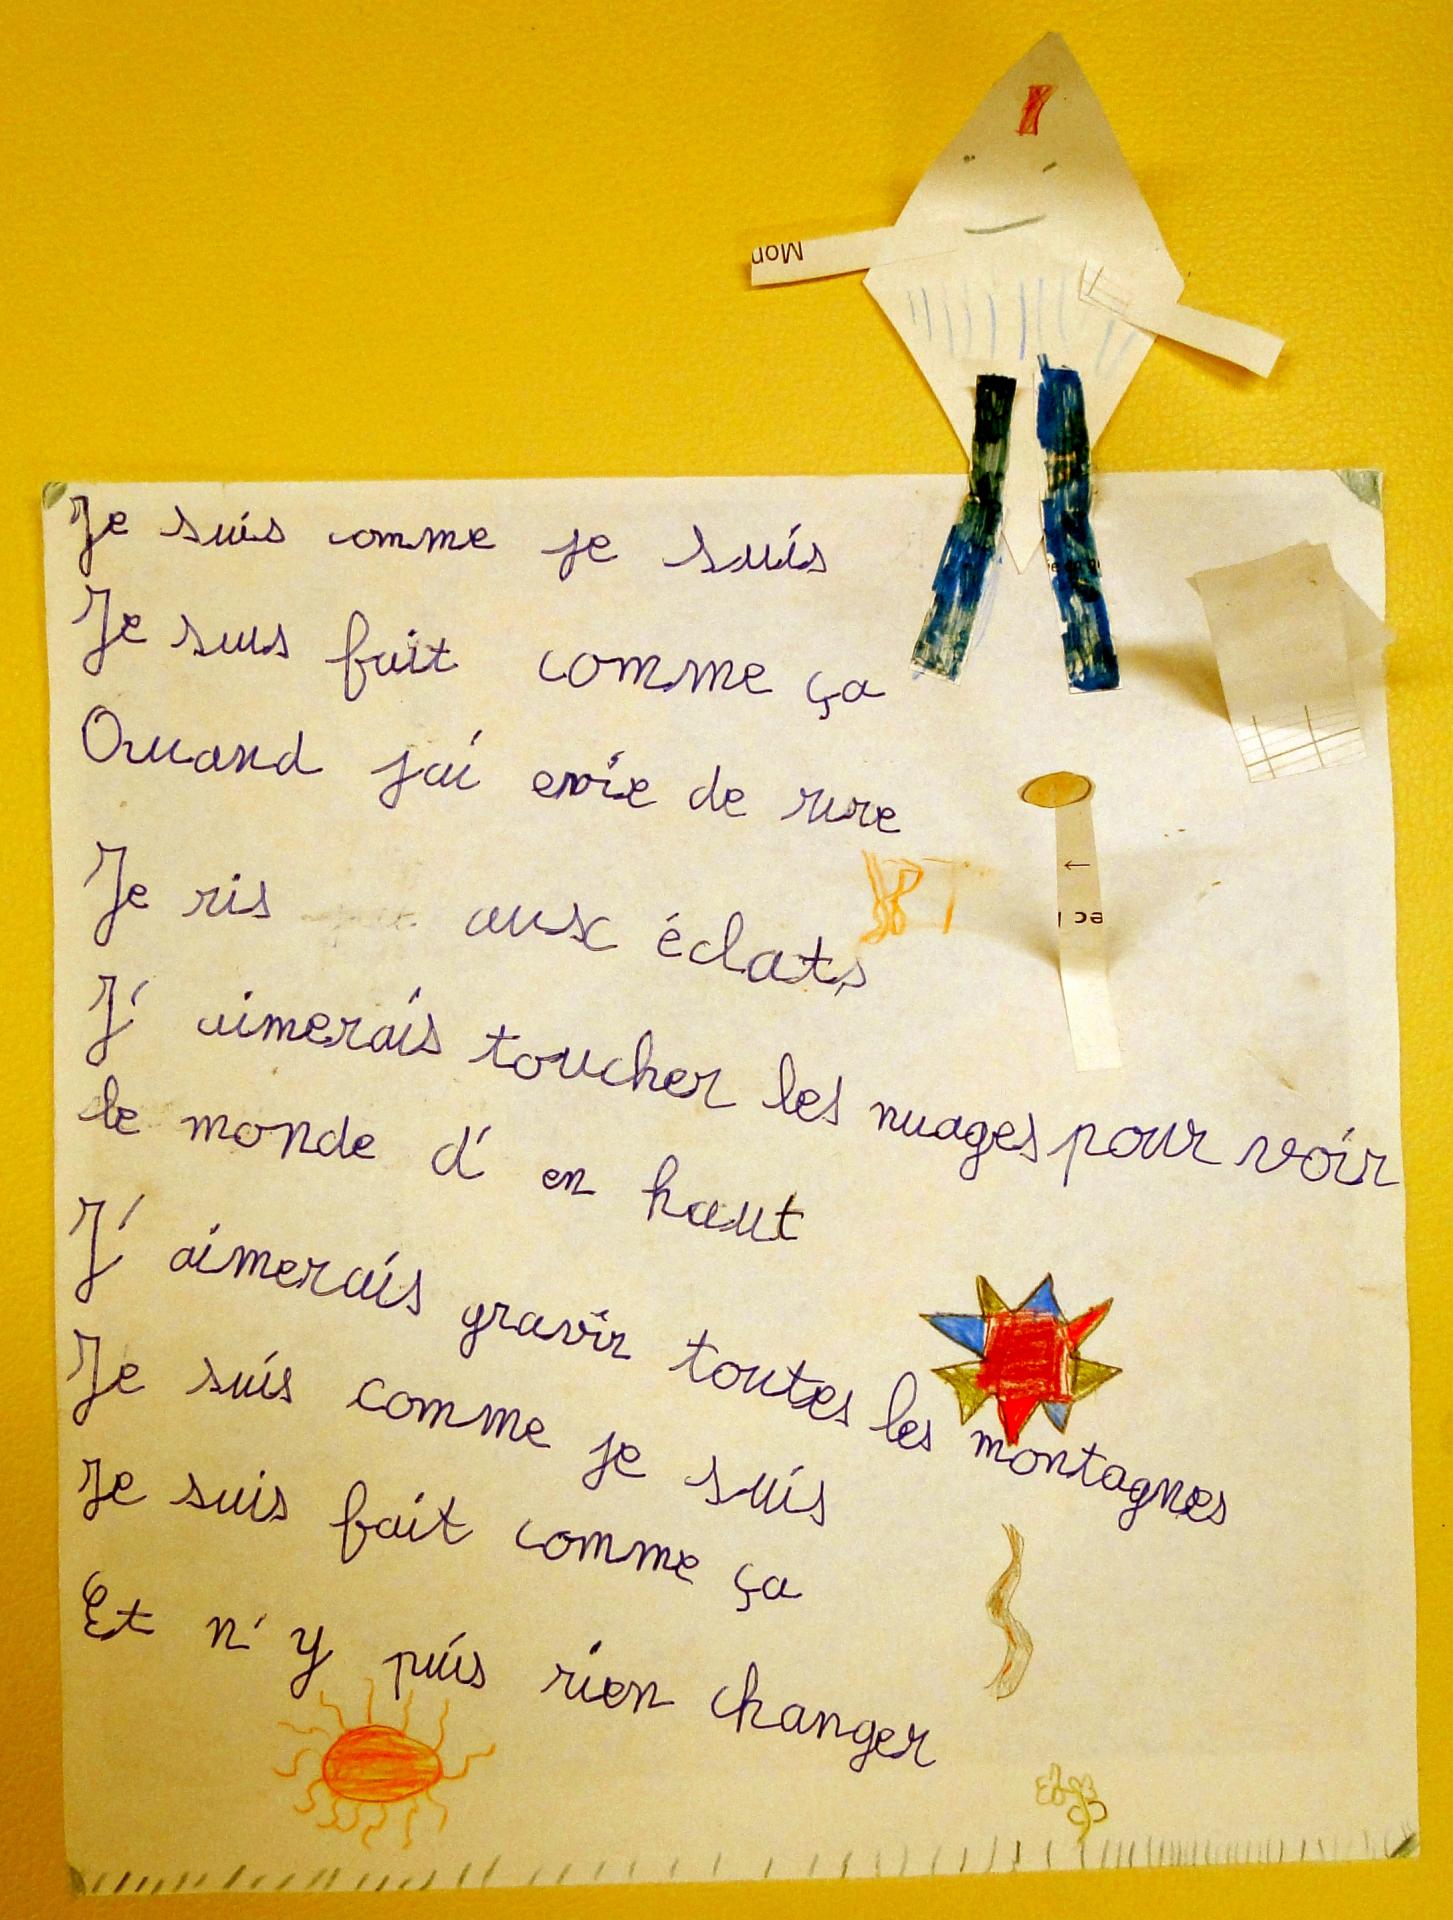 Mon
Je suis comme je suis
Je suis fait comme ça
Quand j'ai envie de rire
Je ris aux éclats
J'aimerais toucher les nuages pour voir
le monde d'en haut
J'aimerais gravir toutes les montagnes
Je suis comme je suis
Je suis fait comme ça
Et n'y puis rien changer